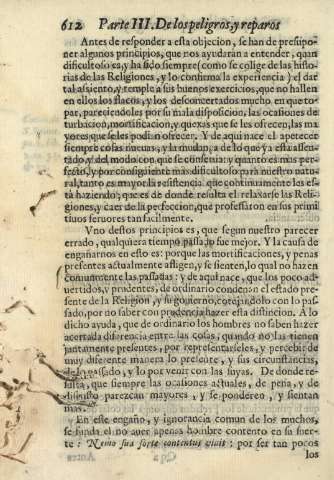 612 Parte III. De los peligros, y reparos
Antes de responder a esta objecion, se han de presupo-
ner algunos principios, que nos ayudaràn a entender, quan
dificultoso es, y ha sido siempre (como se colige de las histo-
rias de las Religiones, y lo confirma la experiencia) el dar
tal assiento, y temple a sus buenos exercicios, que no hallen
en ellos los flacos, y los desconcertados mucho en que to-
par, pareciendoles por su mala disposicion, las ocasiones de
turbacion, mortificacion, y quexas que se les ofrecen, las ma
yores que se les podiã ofrecer. Y de aqui nace el apetecer
siempre cosas nueuas, y la mudança de lo que ya està assen-
tado, y del modo con que se conserua: y quanto es mas per-
fecto, y por consiguiente mas dificultoso para nuestro natu-
ral, tanto es mayor la resistencia que continuamente les es-
tà haziendo; que es de donde resulta el relaxarse las Reli-
giones, y caer de la perfeccion, que professaron en sus primi
tiuos feruores tan facilmente.
Vno destos principios es, que segun nuestro parecer
errado, qualquiera tiempo passado fue mejor. Y la causa de
engañarnos en esto es: porque las mortificaciones, y penas
presentes actualmente afligen, y se sienten, lo qual no hazen
comunmente las passadas: y de aqui nace, que los poco ad-
uertidos, y prudentes, de ordinario condenen el estado pre-
sente de la Religion, y su gouierno, cotejandolo con lo pas-
sado, por no saber con prudencia hazer esta distincion. A lo
dicho ayuda, que de ordinario los hombres no saben hazer
acertada diferencia entre las cosas, quando no las tienen
juntamente presentes, por representarseles, y percebir de
muy diferente manera lo presente, y sus circunstancias,
de lo passado, y lo por venir con las suyas. De donde re-
sulta, que siempre las ocasiones actuales, de pena, y de
disgusto parezcan mayores, y se ponderen, y sientan
mas.
En este engaño, y ignorancia comun de los muchos,
se funda el no auer apenas hombre contento en su suer-
te: Nemo sua sorte contentus viuit: por ser tan pocos
los